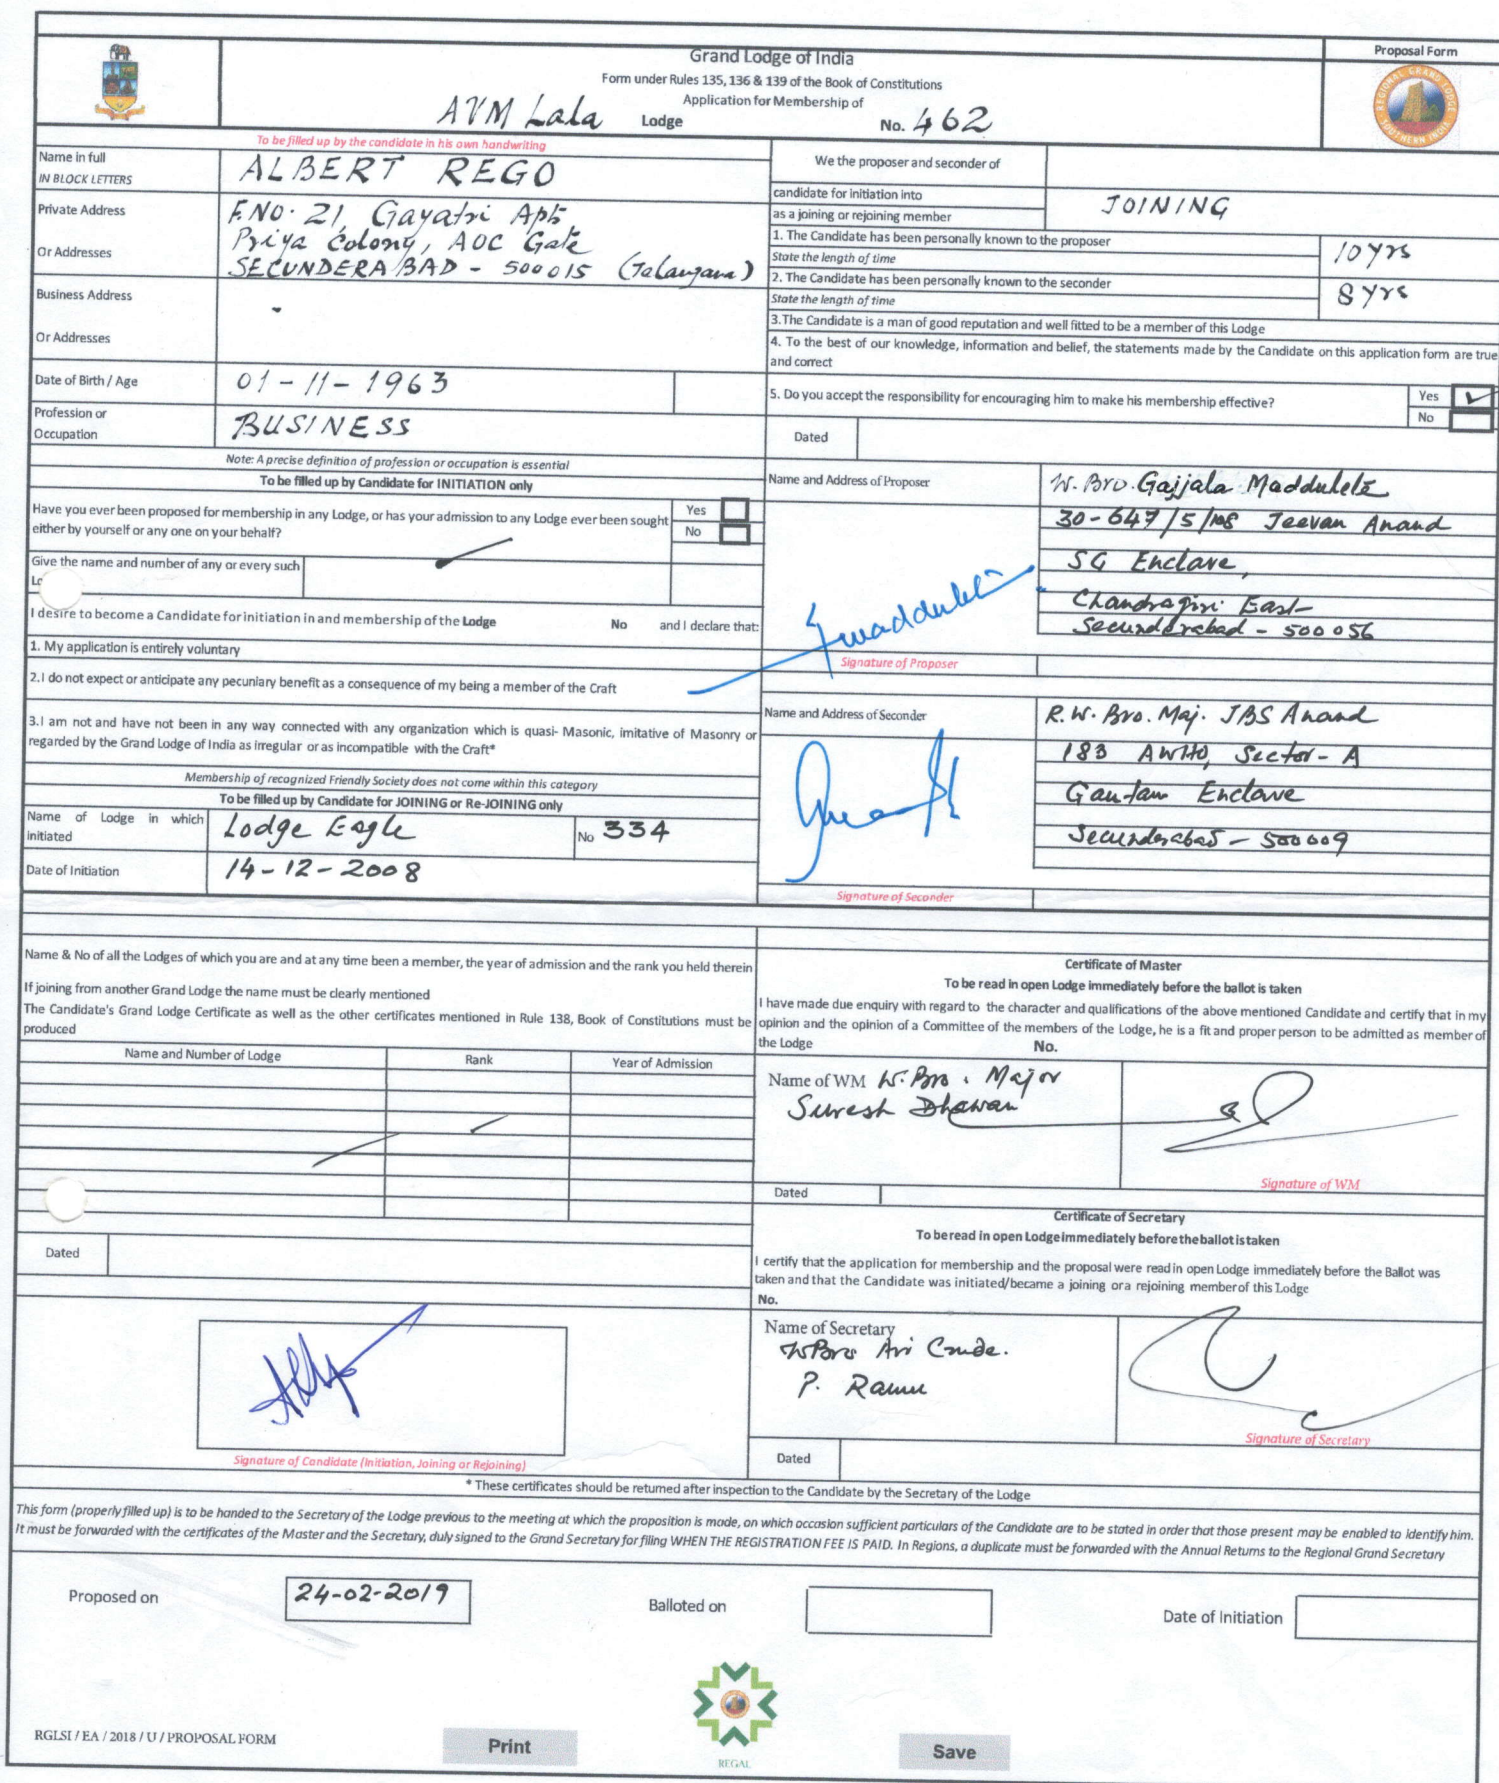 Grand Lodge of India
Form under Rules 135, 136 & 139 of the Book of Constitutions
Application for Membership of
AVM Lala Lodge No. 462
Proposal Form
REGIONAL GRAND LODGE SOUTHERN INDIA
To be filled up by the candidate in his own handwriting
Name in full
IN BLOCK LETTERS
ALBERT REGO
Private Address
Or Addresses
F.NO. 21, Gayatri Apt
Priya Colony, AOC Gate
SECUNDERABAD - 500015 (Telangana)
Business Address
-
Or Addresses
Date of Birth / Age
01-11-1963
Profession or
Occupation
BUSINESS
Note: A precise definition of profession or occupation is essential
To be filled up by Candidate for INITIATION only
Have you ever been proposed for membership in any Lodge, or has your admission to any Lodge ever been sought
either by yourself or any one on your behalf?
Yes
No
Give the name and number of any or every such
I desire to become a Candidate for initiation in and membership of the Lodge No and I declare that:
1. My application is entirely voluntary
2.I do not expect or anticipate any pecuniary benefit as a consequence of my being a member of the Craft
3.I am not and have not been in any way connected with any organization which is quasi- Masonic, imitative of Masonry or
regarded by the Grand Lodge of India as irregular or as incompatible with the Craft*
Membership of recognized Friendly Society does not come within this category
To be filled up by Candidate for JOINING or Re-JOINING only
Name of Lodge in which
initiated
Lodge Eagle
No 334
Date of Initiation
14-12-2008
We the proposer and seconder of
candidate for initiation into
as a joining or rejoining member
JOINING
1. The Candidate has been personally known to the proposer
State the length of time
10 yrs
2. The Candidate has been personally known to the seconder
State the length of time
8 yrs
3.The Candidate is a man of good reputation and well fitted to be a member of this Lodge
4. To the best of our knowledge, information and belief, the statements made by the Candidate on this application form are true
and correct
5. Do you accept the responsibility for encouraging him to make his membership effective?
Yes
No
Dated
Name and Address of Proposer
W. Bro. Gajjala Maddulete
30-647/5/108 Jeevan Anand
SG Enclave,
Chandragiri East
Secunderabad - 500056
Signature of Proposer
Name and Address of Seconder
R.W. Bro. Maj. JBS Anand
183 AWHO, Sector - A
Gautam Enclave
Secunderabad - 500009
Signature of Seconder
Name & No of all the Lodges of which you are and at any time been a member, the year of admission and the rank you held therein
If joining from another Grand Lodge the name must be clearly mentioned
The Candidate's Grand Lodge Certificate as well as the other certificates mentioned in Rule 138, Book of Constitutions must be
produced
Name and Number of Lodge
Rank
Year of Admission
Dated
Signature of Candidate (Initiation, Joining or Rejoining)
Certificate of Master
To be read in open Lodge immediately before the ballot is taken
I have made due enquiry with regard to the character and qualifications of the above mentioned Candidate and certify that in my
opinion and the opinion of a Committee of the members of the Lodge, he is a fit and proper person to be admitted as member of
the Lodge No.
Name of WM W. Bro. Major
Suresh Dhawan
Signature of WM
Dated
Certificate of Secretary
To be read in open Lodge immediately before the ballot is taken
I certify that the application for membership and the proposal were read in open Lodge immediately before the Ballot was
taken and that the Candidate was initiated/became a joining ora rejoining member of this Lodge
No.
Name of Secretary
W Bro Air Cmde.
P. Ramu
Signature of Secretary
Dated
* These certificates should be returned after inspection to the Candidate by the Secretary of the Lodge
This form (properly filled up) is to be handed to the Secretary of the Lodge previous to the meeting at which the proposition is made, on which occasion sufficient particulars of the Candidate are to be stated in order that those present may be enabled to identify him.
It must be forwarded with the certificates of the Master and the Secretary, duly signed to the Grand Secretary for filing WHEN THE REGISTRATION FEE IS PAID. In Regions, a duplicate must be forwarded with the Annual Returns to the Regional Grand Secretary
Proposed on
24-02-2019
Balloted on
Date of Initiation
RGLSI / EA / 2018 / U / PROPOSAL FORM
Print
REGAL
Save